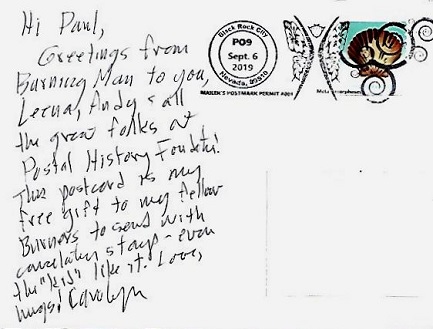 Hi Paul,
Greetings from
Burning Man to you,
Leena, Andy & all
the great folks at
Postal History Foundatn!
This postcard is my
free gift to my fellow
Burners to send with
cancelatn stamp - even
the "kids" like it. Love,
hugs! Carolyn
Black Rock City
PO9
Sept. 6
2019
Nevada, 89510
MAILER'S POSTMARK PERMIT #001